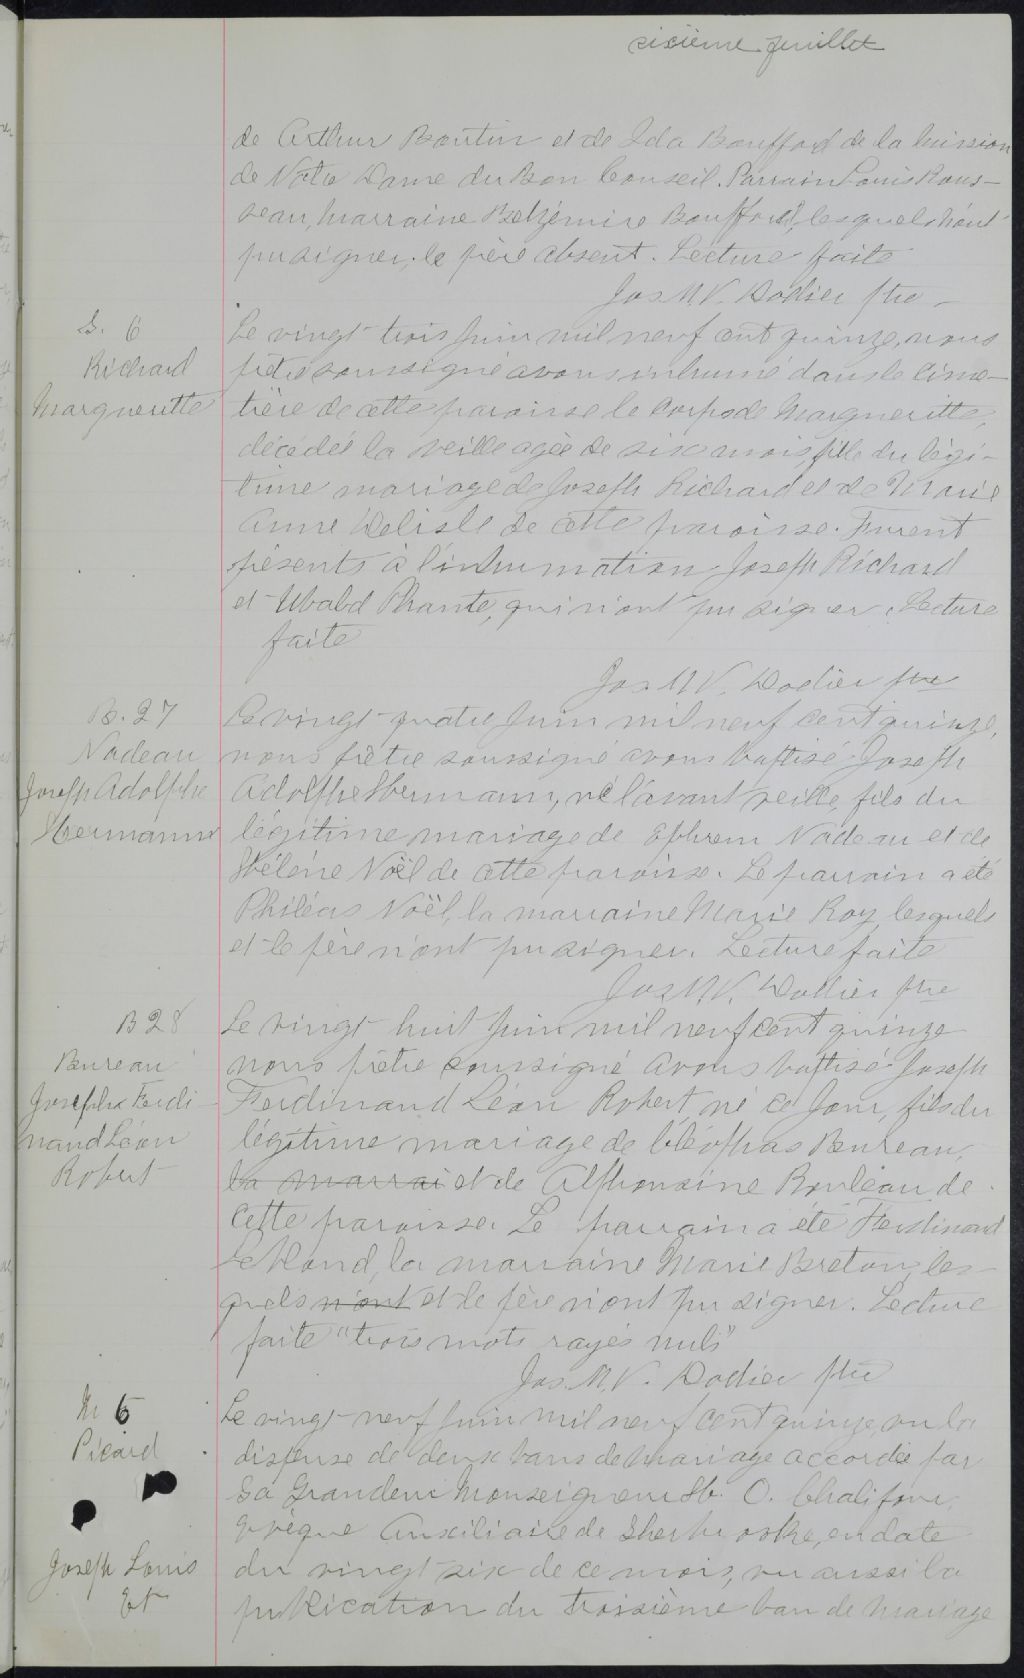 sixième feuillet
de Arthur Boutin et de Ida Bouffard de la mission
de Notre Dame du Bon Conseil. Parrain Louis Rous-
seau, Marraine Belzémire Bouffard, lesquels n'ont
pu signer, le père absent. Lecture faite
Jos M.V. Dodier ptre
S. 6
Richard
Margueritte
Le vingt trois Juin mil neuf cent quinze, nous
prêtre soussigné avons inhumé dans le cime-
tière de cette paroisse le corps de Margueritte,
décédée la veille agée de six mois, fille du légi-
time mariage de Joseph Richard et de Marie
Anne Delisle de cette paroisse. Furent
présents à l'inhumation Joseph Richard
et Ubald Plante, qui n'ont pu signer. Lecture
faite
Jos M.V. Dodier ptre
B. 27
Nadeau
Joseph Adolphe
Hermann
Le vingt quatre Juin mil neuf cent quinze,
nous prêtre soussigné avons baptisé Joseph
Adolphe Hermann, né l'avant veille, fils du
légitime mariage de Ephrem Nadeau et de
Hélène Noël de cette paroisse. Le parrain a été
Philéas Noël, la marraine Marie Roy, lesquels
et le père n'ont pu signer. Lecture faite
Jos M.V. Dodier ptre
B 28
Bureau
Joseph Ferdi-
nand Léon
Robert
Le vingt huit Juin mil neuf cent quinze
nous prêtre soussigné avons baptisé Joseph
Ferdinand Léon Robert, né ce Jour, fils du
légitime mariage de Cléophas Bureau,
la marrai et de Alphonsine Bouleau de
cette paroisse. Le parrain a été Ferdinand
Leblond, la marraine Marie Breton, les-
quels n'ont et le père n'ont pu signer. Lecture
faite "trois mots rayés nuls"
Jos. M.V. Dodier ptre
M 6
Picard
Joseph Louis
Et
Le vingt-neuf Juin mil neuf cent quinze, vu la
dispense de deux bans de mariage accordée par
Sa Grandeur Monseigneur H. O. Chalifoux,
Evêque Auxiliaire de Sherbrooke, en date
du vingt six de ce mois, vu aussi la
publication du troisième ban de mariage